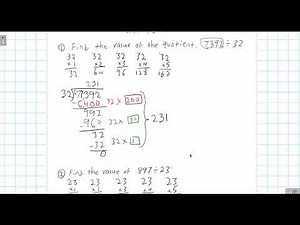 ① Find the value of the quotient, 7392 ÷ 32
32 32 32 32 32
x1 x2 x3 x4 x5
32 64 96 128 160
231
32 7392
-6400 32 x 200
992
-960 32 x 30 -231
32
-32 32 x 1
0
② Find the value of 897 ÷ 23
23 23 23 23 23
x1 x2 x3 x4 x5